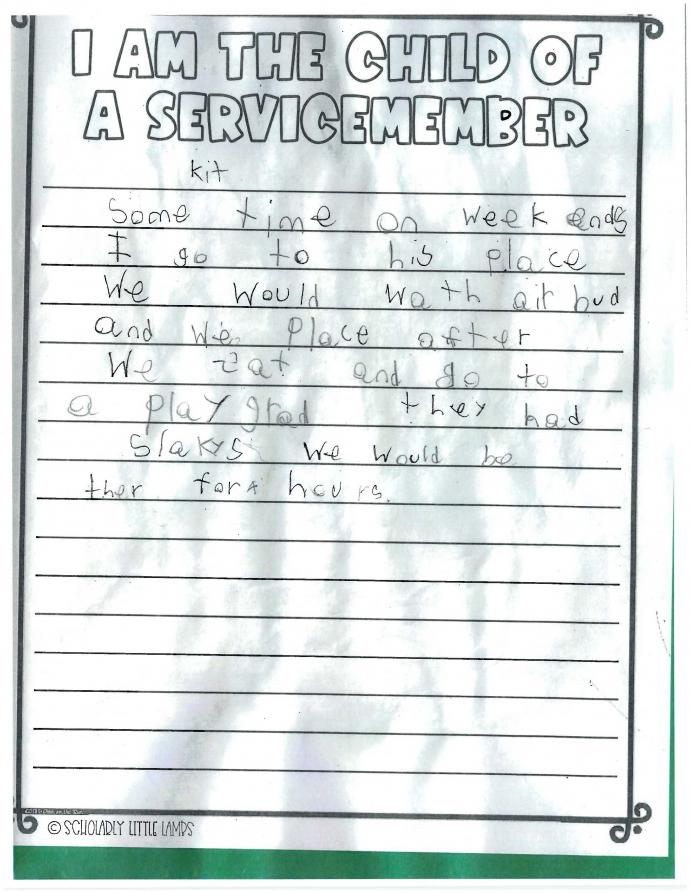 I AM THE CHILD OF
A SERVICEMEMBER
kit
Some time on week ends
I go to his place
We would wath air bud
and we place after
We eat and go to
a play grad they had
Slakys we would be
ther for 4 hours.
© SCHOLARLY LITTLE LAMBS